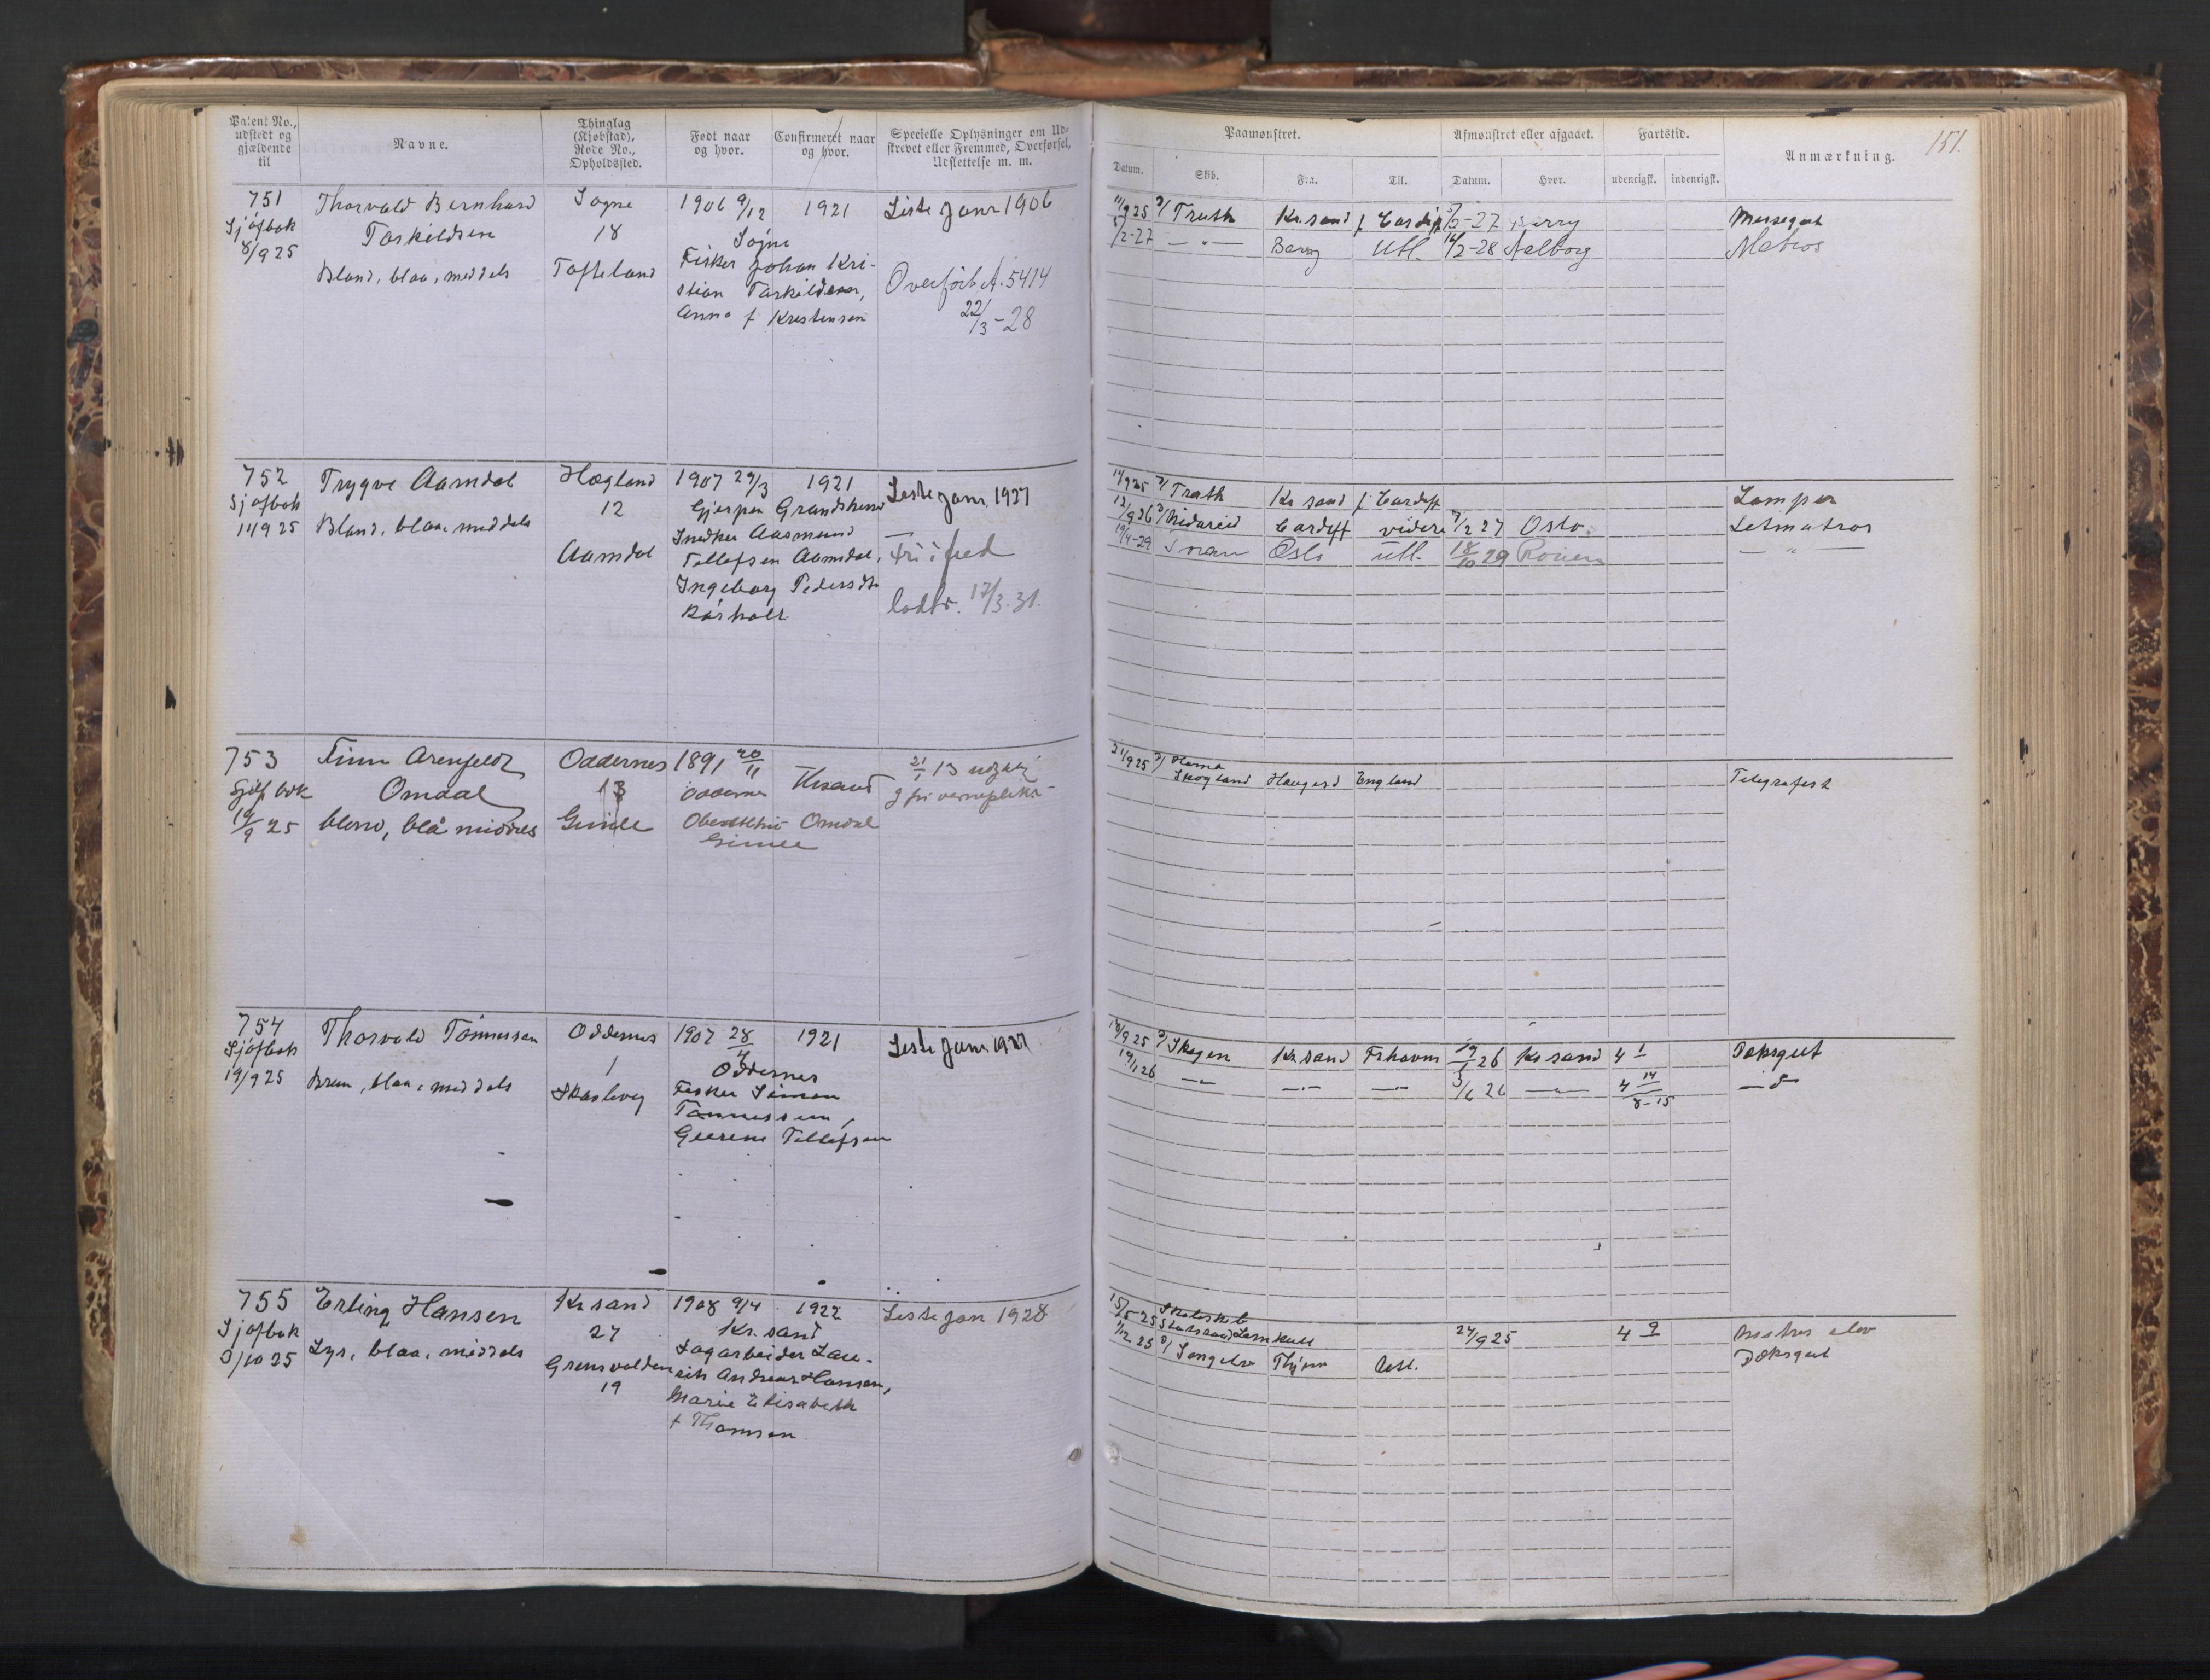 Patent No., udstedt og gjældende til
Navne.
Thinglag (Kjøbstad), Rode No., Opholdssted.
Født naar og hvor.
Confirmeret naar og hvor.
Specielle Oplysninger om Udskrevet eller Fremmed, Overførsel, Udslettelse m. m.
Paamønstret.
Afmønstret eller afgaaet.
Fartstid.
Anmærkning.
151.
Datum.
Skib.
Fra.
Til.
Datum.
Hvor.
udenrigsk.
indenrigsk.
751
Sjöfbok
8/9 25
Thorvald Bernhard
Torkildsen
Blond, blaa, meddels
Sogne
18
Tofteland
1906 9/12
1921
Sogne
Fisker Johan Kri-
stian Torkildsen,
Anna f Kristensen
Liste Janr 1906
Overført A. 5414
22/3-28
11/9 25 D/ Truth Kr.sand f Cardiff 5/2-27 Barry
Messegut
5/2-27 — " — Barry Utl. 16/2-28 Aalborg
Matros
752
Sjöfbok
11/9 25
Trygve Aamdal
Blond, blaa, meddels
Hægland
12
Aamdal
1907 29/3
1921
Gjerpen
Snedker Aasmund
Tellefsen Aamdal,
Ingeborg Pedersdtr
Liste janr. 1927
Fri i fred
17/3.31.
11/9 25 D/ Truth Kr sand f Cardiff
Lemper
12/9 26 D/ Nidareid Cardiff videre 7/2 27 Oslo.
Letmatros
19/4-29 Oslo utl. 18/10 29 Rouen
— " —
753
Sjöfbok
19/9 25
Finn Arenfeldt
Omdal
blond, blå middels
Oddernes
13
Gimle
1891 20/11
Oddernes
Krsand
Omdal
Gimle
21/1 13
21/9 25 D/ Hanna
Skogland Haugesd England
Telegrafist
754
Sjöfbok
19/9 25
Thorvald Tönnessen
Brun, blaa, meddels
Oddernes
1
1907 28/4
1921
Oddernes
Fisker Simon
Tönnessen,
Tellefsen
Liste Janr. 1927
18/9 25 D/ Skagen Kr.sand Frhavn 19/1 26 Kr sand 4 1
Dæksgut
19/1 26 3/6 26 4 14
8-15
755
Sjöfbok
3/10 25
Erling Hansen
Lys, blaa, middels
Kr.sand
27
Grensvolden
19
1908 9/4
1922
Kr. sand
Sagarbeider Lau-
rits Andreas Hansen,
Marie Elisabeth
f Thomsen
Liste jan 1928
15/5 25 Skoleskib
Statsraad Lemkuhl 24/9 25 4 9
elev
1/12 25 D/ Songelv Utl.
Dæksgut